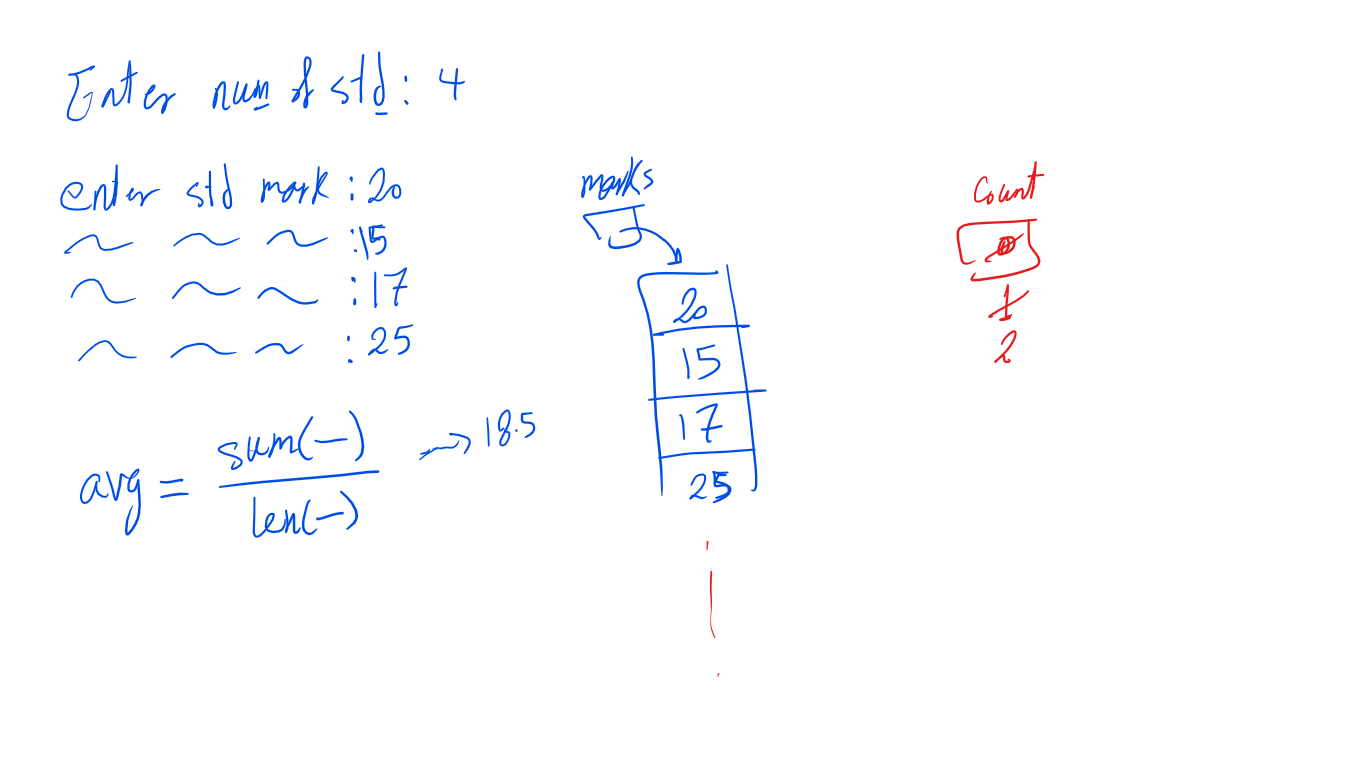 Enter num of std : 4
enter std mark : 20
: 15
: 17
: 25
avg = sum(-) / len(-) → 18.5
marks
20
15
17
25
Count
0
1
2